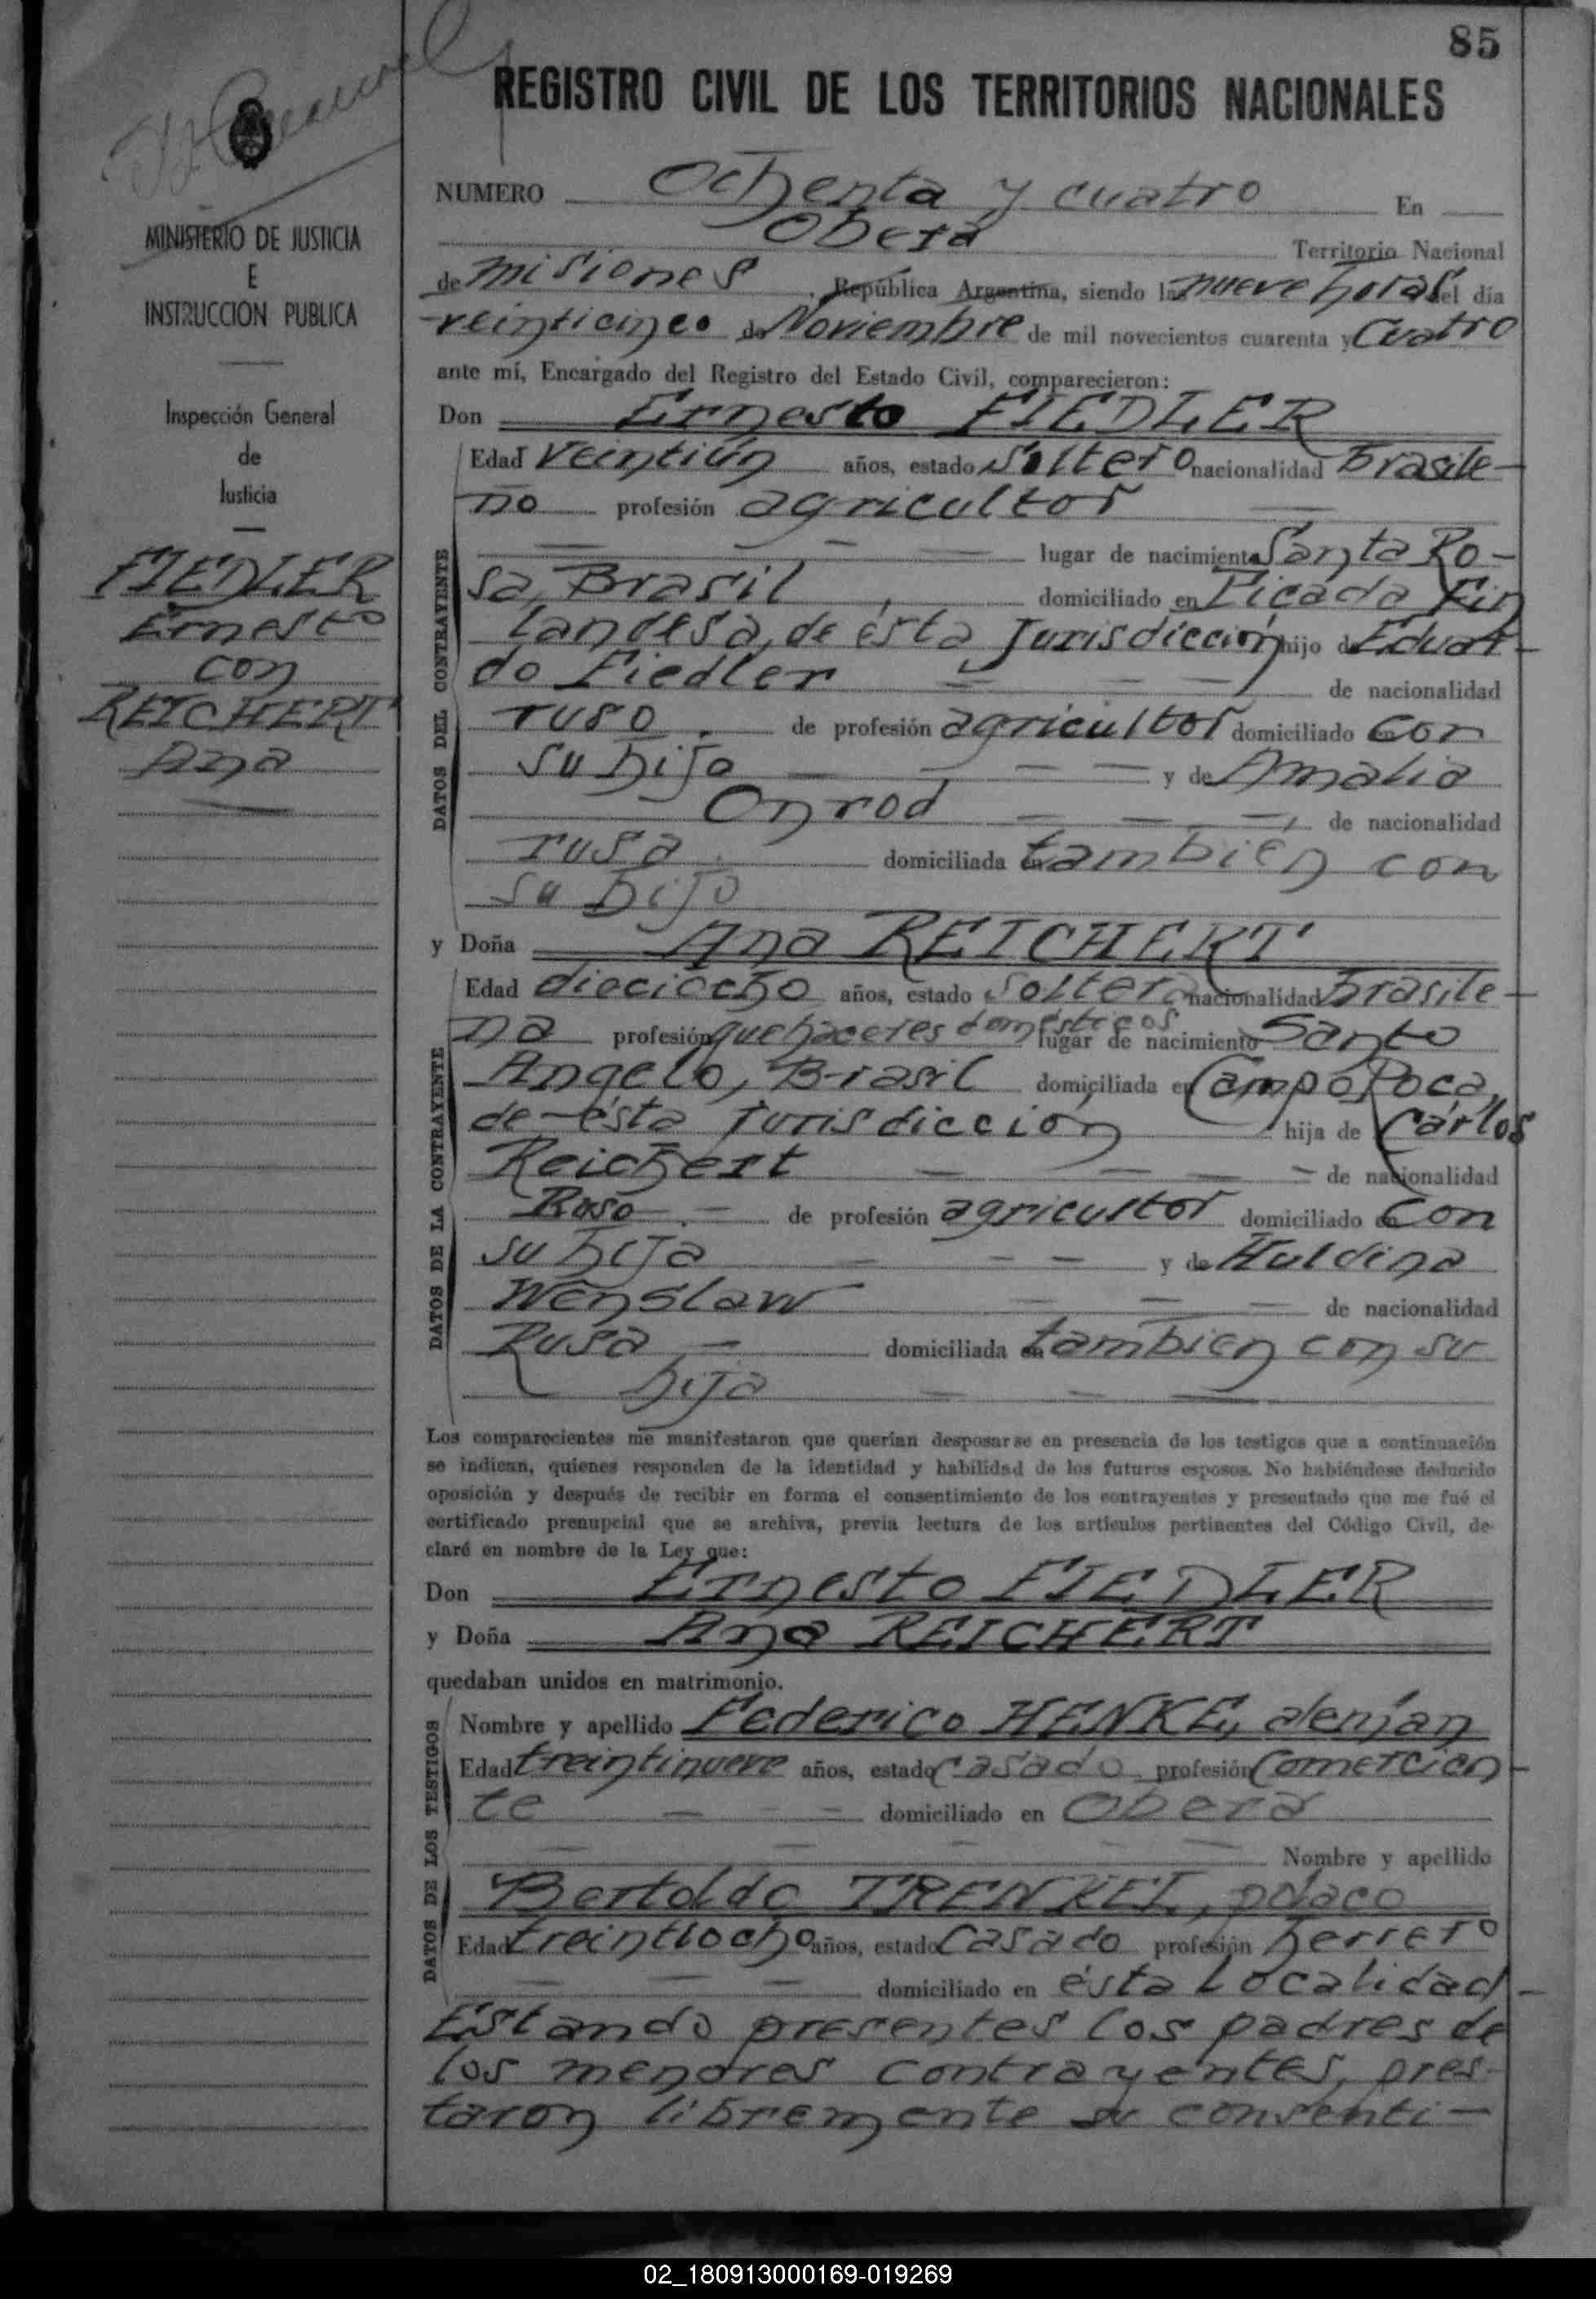 85
REGISTRO CIVIL DE LOS TERRITORIOS NACIONALES
MINISTERIO DE JUSTICIA
E
INSTRUCCION PUBLICA
Inspección General
de
Justicia
FIEDLER
Ernesto
con
REICHERT
Ana
NUMERO Ochenta y cuatro En
Oberá Territorio Nacional
de Misiones, República Argentina, siendo las nueve horas del día
veinticinco de Noviembre de mil novecientos cuarenta y Cuatro
ante mí, Encargado del Registro del Estado Civil, comparecieron:
Don Ernesto FIEDLER
DATOS DEL CONTRAYENTE
Edad veintiún años, estado soltero nacionalidad Brasile-
no profesión agricultor
lugar de nacimiento Santa Ro-
sa, Brasil, domiciliado en Picada Fin
landesa, de ésta Jurisdicción hijo de Eduar-
do Fiedler de nacionalidad
ruso. de profesión agricultor domiciliado con
su hijo y de Amalia
Onrod, de nacionalidad
rusa. domiciliada en tambien con
su hijo
y Doña Ana REICHERT
DATOS DE LA CONTRAYENTE
Edad dieciocho años, estado soltera nacionalidad Brasile-
na profesión quehaceres domésticos lugar de nacimiento Santo
Angelo, Brasil domiciliada en Campo Roca,
de ésta jurisdicción hija de Cárlos
Reichert de nacionalidad
Ruso. de profesión agricultor domiciliado en con
su hija y de Huldina
Wenslaw de nacionalidad
Rusa domiciliada en tambien con su
hija
Los comparecientes me manifestaron que querían desposarse en presencia de los testigos que a continuación
se indican, quienes responden de la identidad y habilidad de los futuros esposos. No habiéndose deducido
oposición y después de recibir en forma el consentimiento de los contrayentes y presentado que me fué el
certificado prenupcial que se archiva, previa lectura de los artículos pertinentes del Código Civil, de-
claré en nombre de la Ley que:
Don Ernesto FIEDLER
y Doña Ana REICHERT
quedaban unidos en matrimonio.
DATOS DE LOS TESTIGOS
Nombre y apellido Federico HENKE, alemán
Edad treintinueve años, estado casado profesión Comercian-
te domiciliado en Oberá
Nombre y apellido
Bertoldo TRENKEL, polaco
Edad treintiocho años, estado Casado profesión herrero
domiciliado en ésta Localidad-
Estando presentes los padres de
los menores contrayentes, pres-
taron libremente su consenti-
02_180913000169-019269